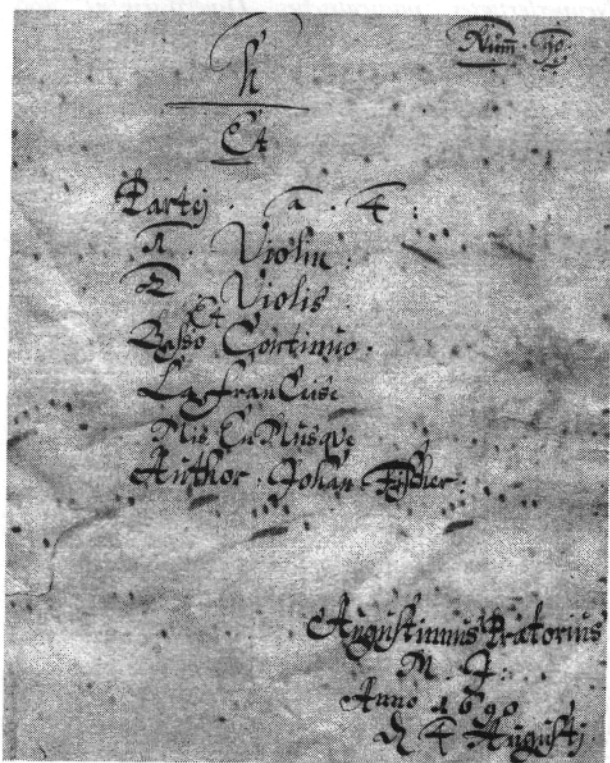 Num. 90.
h
Et
Partej. a. 4:
1. Violin:
2. Violis
Et
Basso Continuo.
La francoise
Mis En Musqve
Author. Johan Fischer:
Augustinus Pratorius
M. J:
Anno 1690
4 Augustj.